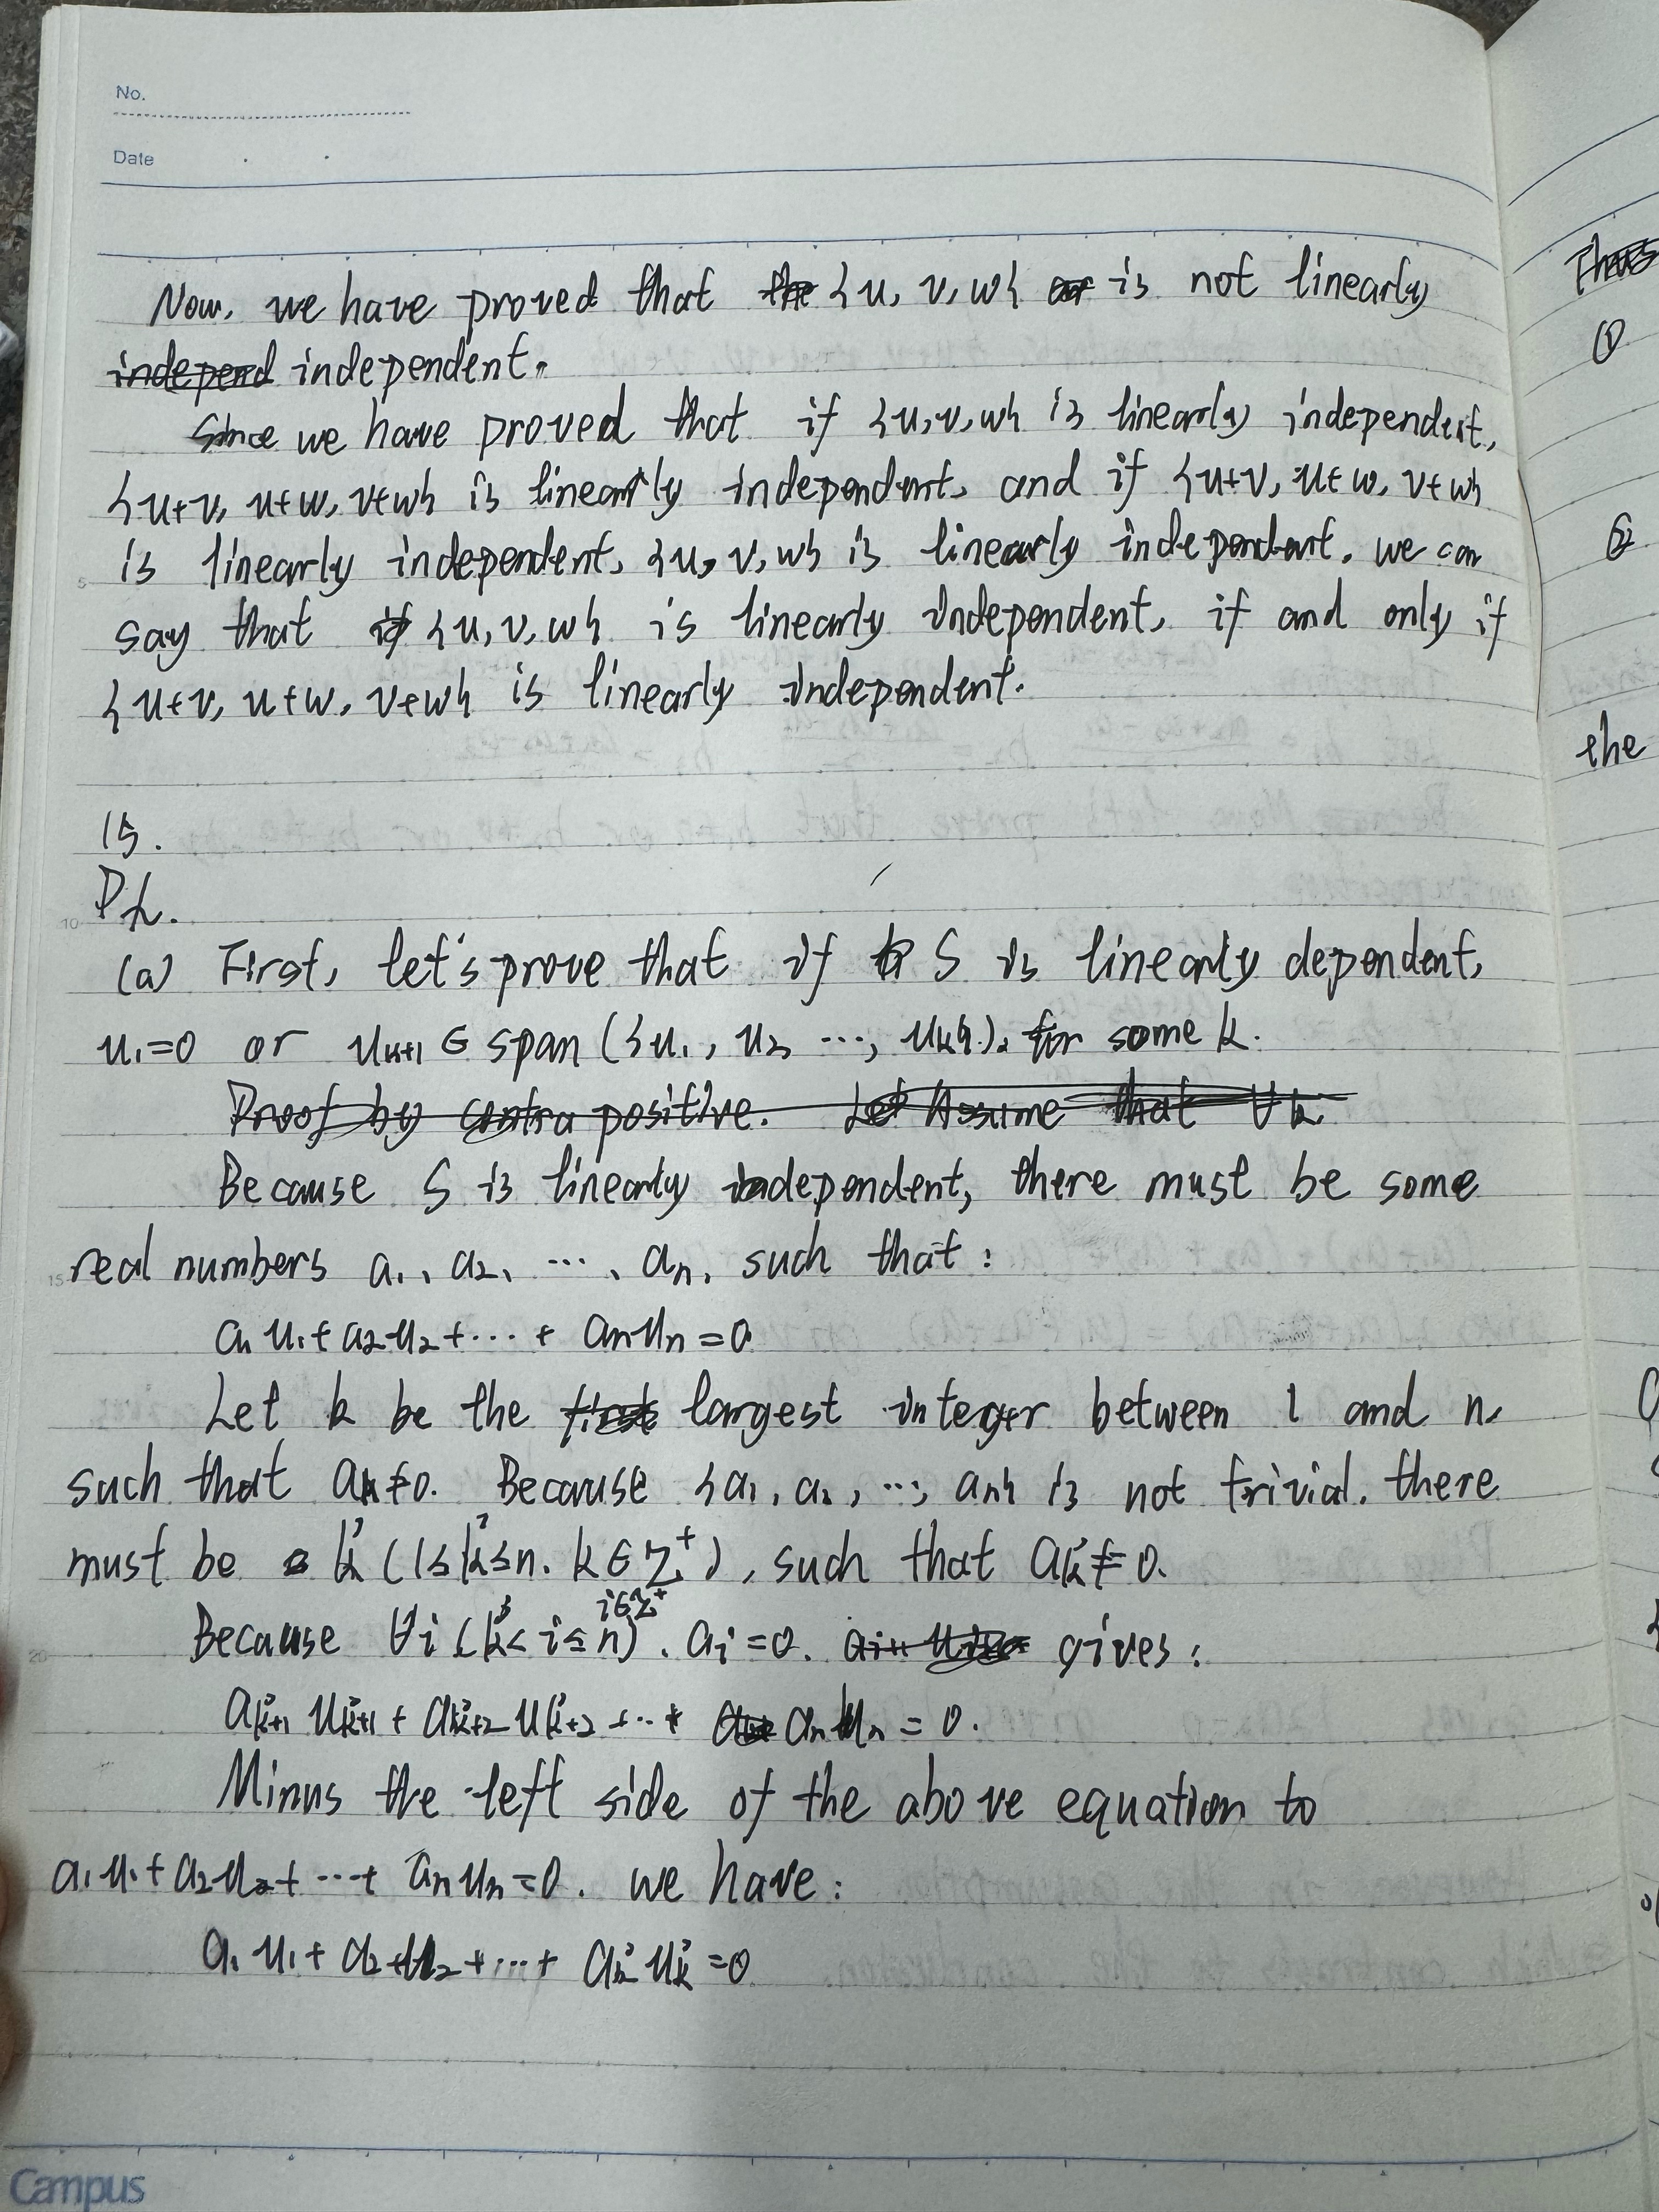 No.
Date
Now, we have proved that {u, v, w} is not linearly
independent.
we have proved that if {u, v, w} is linearly independent,
{u+v, u+w, v+w} is linearly independent, and if {u+v, u+w, v+w}
is linearly independent, {u, v, w} is linearly independent. we can
say that {u, v, w} is linearly independent, if and only if
{u+v, u+w, v+w} is linearly independent.
15.
Pf.
(a) First, let's prove that if S is linearly dependent,
u₁=0 or uₖ₊₁ ∈ span ({u₁, u₂, ..., uₖ}). for some k.
Because S is linearly dependent, there must be some
real numbers a₁, a₂, ..., aₙ, such that:
a₁u₁+a₂u₂+...+ aₙuₙ=0
Let k be the largest integer between 1 and n,
such that aₖ≠0. Because {a₁, a₂, ..., aₙ} is not trivial. there
must be a k' (1≤k'≤n. k∈Z⁺), such that aₖ'≠0.
i∈Z⁺
Because ∀i (k'<i≤n), aᵢ=0. gives:
aₖ'₊₁ uₖ'₊₁ + aₖ'₊₂ uₖ'₊₂ +...+ aₙuₙ = 0.
Minus the left side of the above equation to
a₁u₁+a₂u₂+...+ aₙuₙ=0. we have:
a₁u₁+ a₂u₂+...+ aₖ'uₖ'=0
Thus
①
②
the
Campus
5
10
15
20